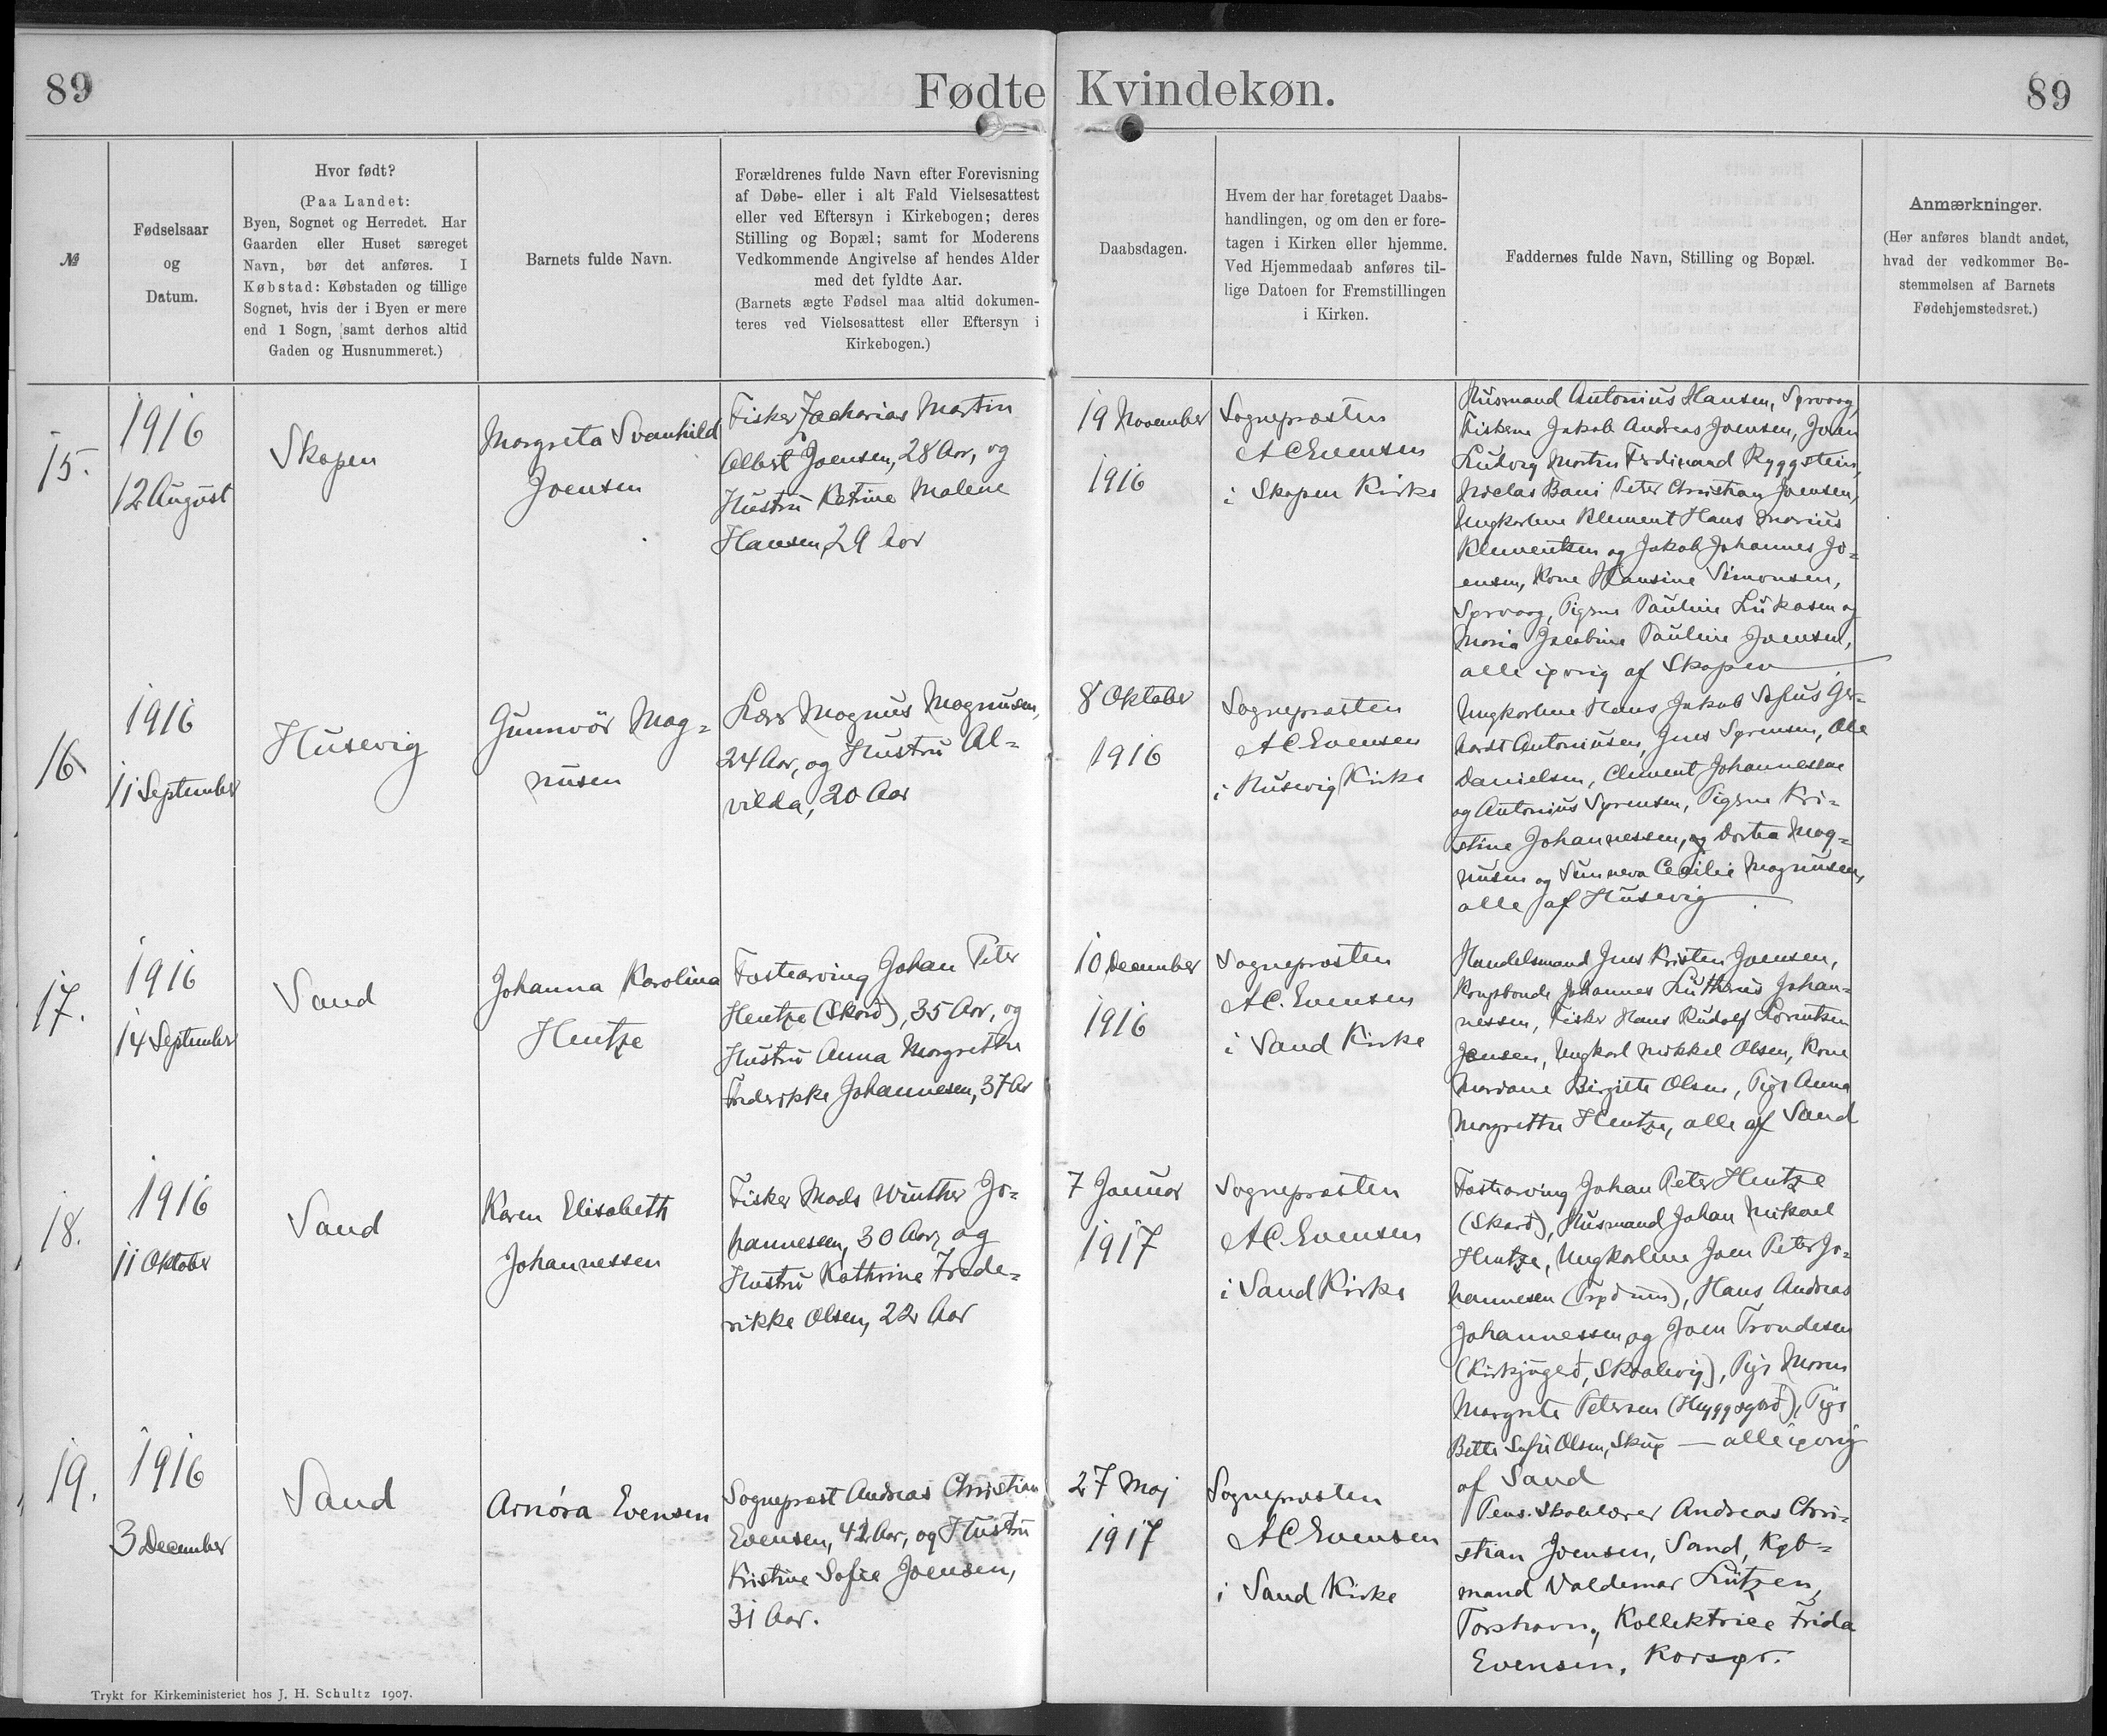 89
Fødte Kvindekøn.
89
№
Fødselsaar
og
Datum.
Hvor født?
(Paa Landet:
Byen, Sognet og Herredet. Har
Gaarden eller Huset særeget
Navn, bør det anføres. I
Købstad: Købstaden og tillige
Sognet, hvis der i Byen er mere
end 1 Sogn, samt derhos altid
Gaden og Husnummeret.)
Barnets fulde Navn.
Forældrenes fulde Navn efter Forevisning
af Døbe- eller i alt Fald Vielsesattest
eller ved Eftersyn i Kirkebogen; deres
Stilling og Bopæl; samt for Moderens
Vedkommende Angivelse af hendes Alder
med det fyldte Aar.
(Barnets ægte Fødsel maa altid dokumen-
teres ved Vielsesattest eller Eftersyn i
Kirkebogen.)
Daabsdagen.
Hvem der har foretaget Daabs-
handlingen, og om den er fore-
tagen i Kirken eller hjemme.
Ved Hjemmedaab anføres til-
lige Datoen for Fremstillingen
i Kirken.
Faddernes fulde Navn, Stilling og Bopæl.
Anmærkninger.
(Her anføres blandt andet,
hvad der vedkommer Be-
stemmelsen af Barnets
Fødehjemstedsret.)
15.
1916
12 August
Skopen
Margreta Svanhild
Joensen
Fisker Zacharias Martin
Albert Joensen, 28 Aar, og
Hustru Katrine Malene
Hansen, 29 Aar
19 November
1916
Sognepræsten
A C Evensen
i Skopen Kirke
Husmand Antonius Hansen, Sørvaag,
Fiskerne Jakob Andreas Joensen, Joen
Ludvig Morten Ferdinand Ryggstein,
Niclas Bani Peter Christian Joensen,
Ungkarlene Klement Hans Marius
Klementsen og Jakob Johannes Jo-
ensen, Kone Hansine Simonsen,
Sørvaag, Pigerne Pauline Lukasen og
Maria Jacobine Pauline Joensen,
alle iøvrig af Skopen
16
1916
11 September
Husevig
Gunnvør Mag-
nusen
Lærer Magnus Magnusen,
24 Aar, og Hustru Al-
vilda, 20 Aar
8 Oktober
1916
Sognepræsten
A C Evensen
i Husevig Kirke
Ungkarlene Hans Jakob Sofus Ger-
hardt Antoniusen, Jens Sørensen, Ole
Danielsen, Clement Johannessen
og Antonius Sørensen, Pigerne Kri-
stine Johannessen, og Dortea Mag-
nusen og Sunneva Cecilie Magnusen,
alle af Husevig
17.
1916
14 September
Sand
Johanna Karolina
Hentze
Festearving Johan Peter
Hentze (Skarð), 35 Aar, og
Hustru Anna Margrethe
Frederikke Johannesen, 37 Aar
10 December
1916
Sognepræsten
A C. Evensen
i Sand Kirke
Handelsmand Jens Kristen Joensen,
Kongsbonde Johannes Lutherus Johan-
nessen, Fisker Hans Rudolf Lorentsen
Jensen, Ungkarl Mikkel Olsen, Kone
Mariane Birgitte Olsen, Pige Anna
Margrethe Hentze, alle af Sand
18.
1916
11 Oktober
Sand
Karen Elisabeth
Johannessen
Fisker Mads Winther Jo-
hannessen, 30 Aar, og
Hustru Kathrine Frede-
rikke Olsen, 22 Aar
7 Januar
1917
Sognepræsten
A C. Evensen
i Sand Kirke
Festearving Johan Peter Hentze
(Skarð), Husmand Johan Mikael
Hentze, Ungkarlene Joen Peter Jo-
hannesen, Hans Andreas
Johannessen og Joen Trondesen
(Kirkjugerð, Skaalevig), Pige Maren
Margrete Petersen (Heyggsgerð), Pige
Bette Sofie Olsen, — alle iøvrig
af Sand
19.
1916
3 December
Sand
Arnóra Evensen
Sognepræst Andreas Christian
Evensen, 42 Aar, og Hustru
Kristine Sofie Joensen,
31 Aar.
27 Maj
1917
Sognepræsten
A C Evensen
i Sand Kirke
Pens. Skolelærer Andreas Chri-
stian Joensen, Sand, Køb-
mand Valdemar Lützen,
Torshavn, Kollektrice Frida
Evensen, Korsør.
Trykt for Kirkeministeriet hos J. H. Schultz 1907.